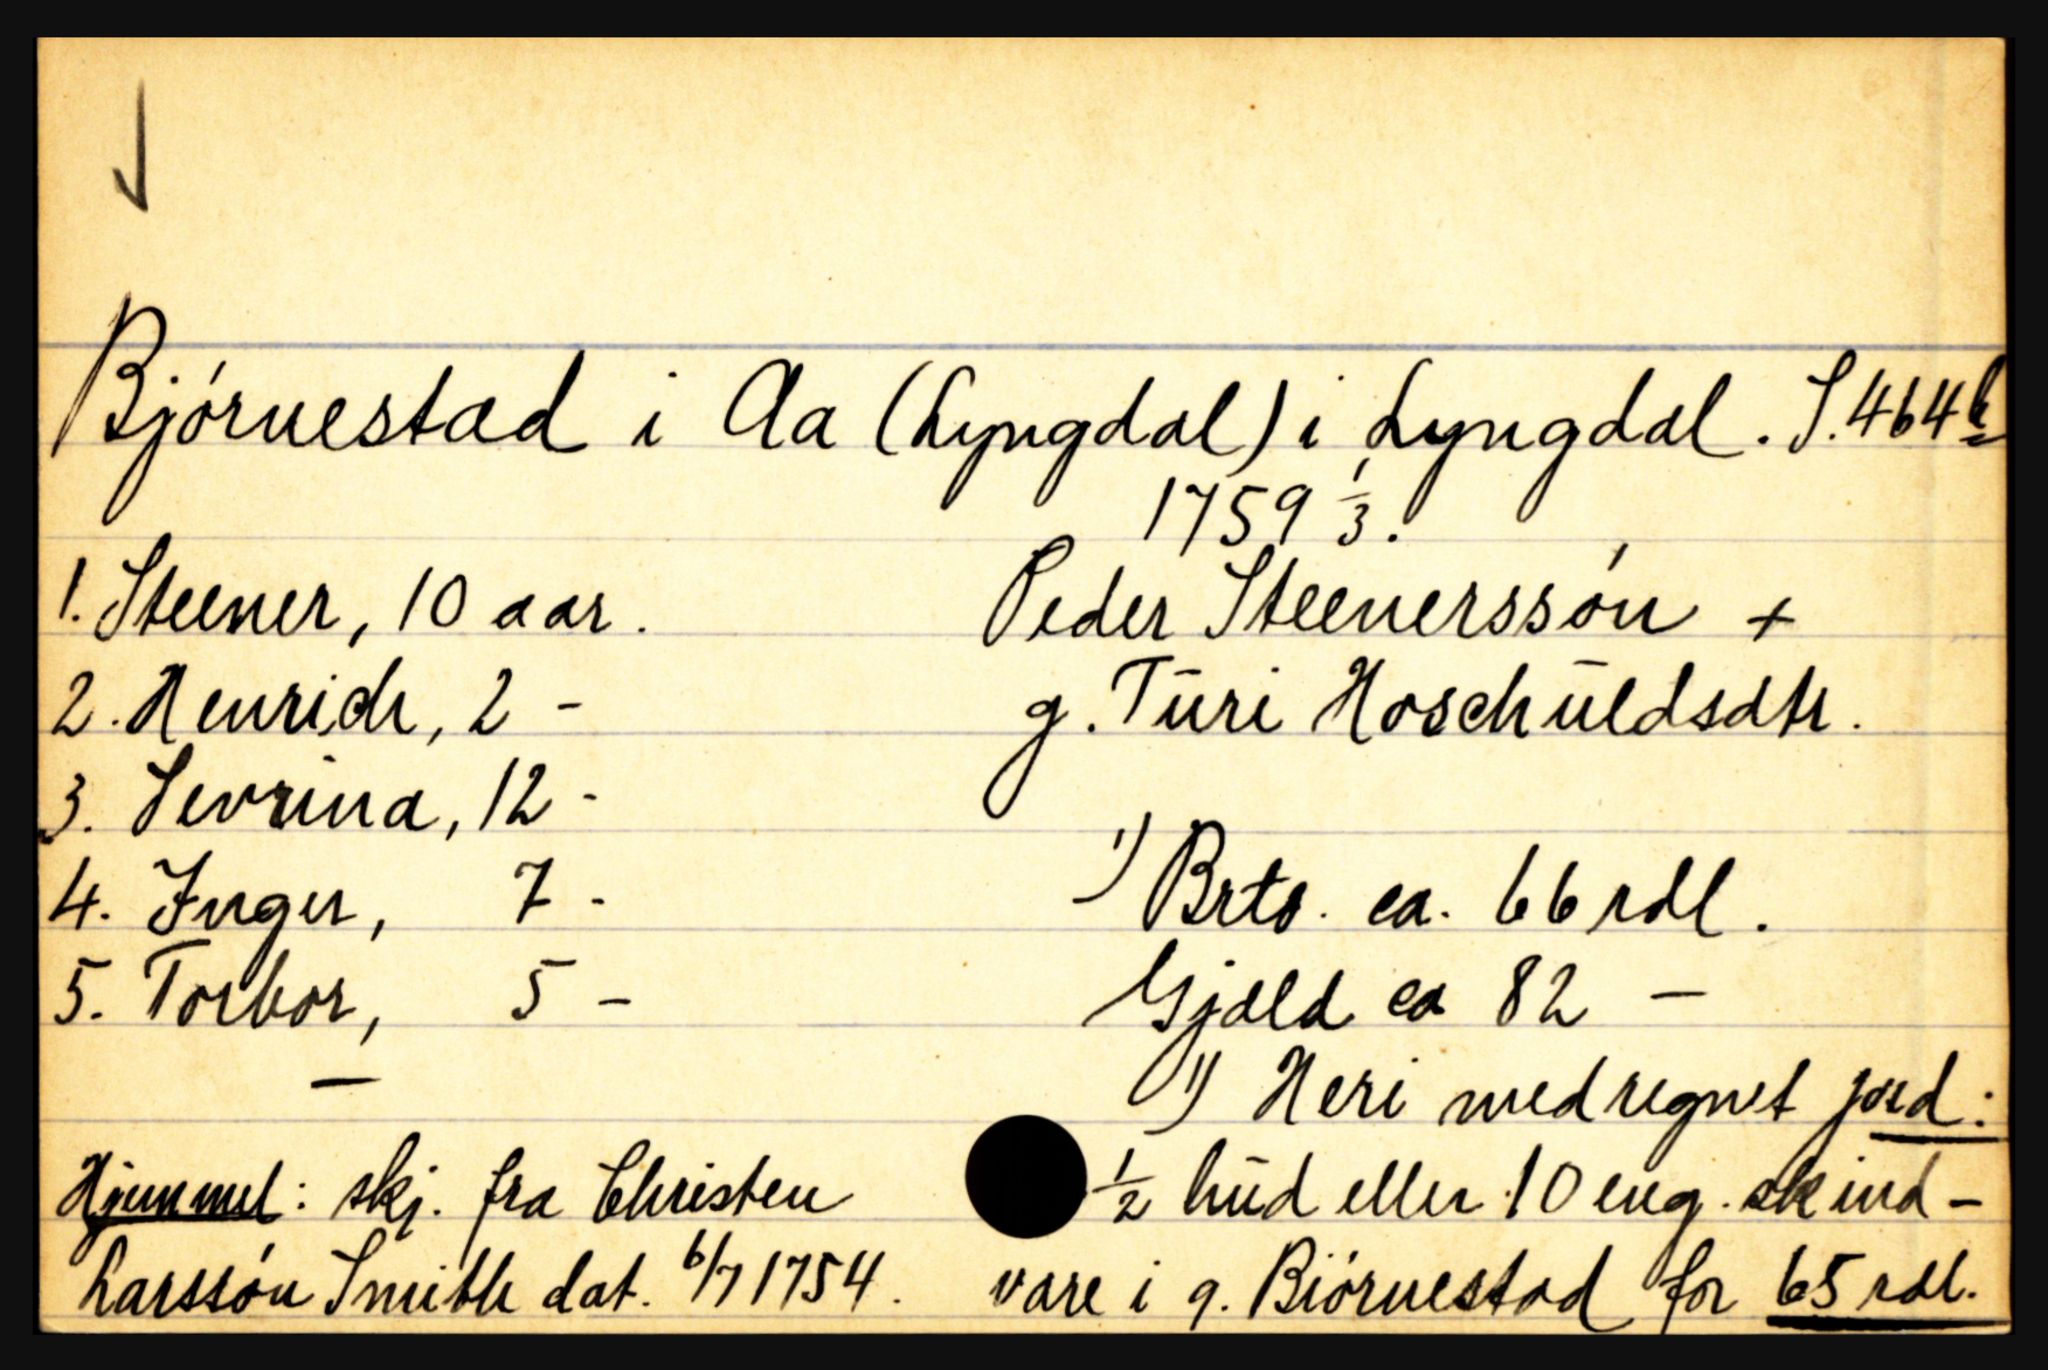 Bjórnestad i Aa (Lyngdal) i Lyngdal. S. 464b
1759 1/3.
1. Steener, 10 aar.
2. Henrich, 2 -
3. Sevrina, 12 -
4. Inger, 7 -
5. Torbor, 5 -
—
Hjemmel: skj. fra Christen
Larssón Smith dat. 6/7 1754.
Peder Steenerssón +
g. Tūri Hoschūldsdtr.
1) Brto. ca. 66 rdl.
Gjæld ca 82 —
1) Heri medregnet jord:
1/2 hūd eller 10 eng. skind-
vare i g. Biórnestad for 65 rdl.